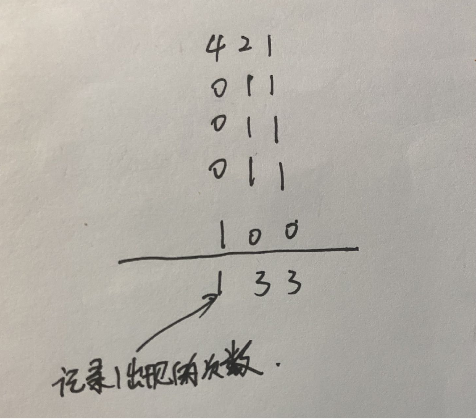 4 2 1
0 1 1
0 1 1
0 1 1
1 0 0
1 3 3
记录1出现的次数.